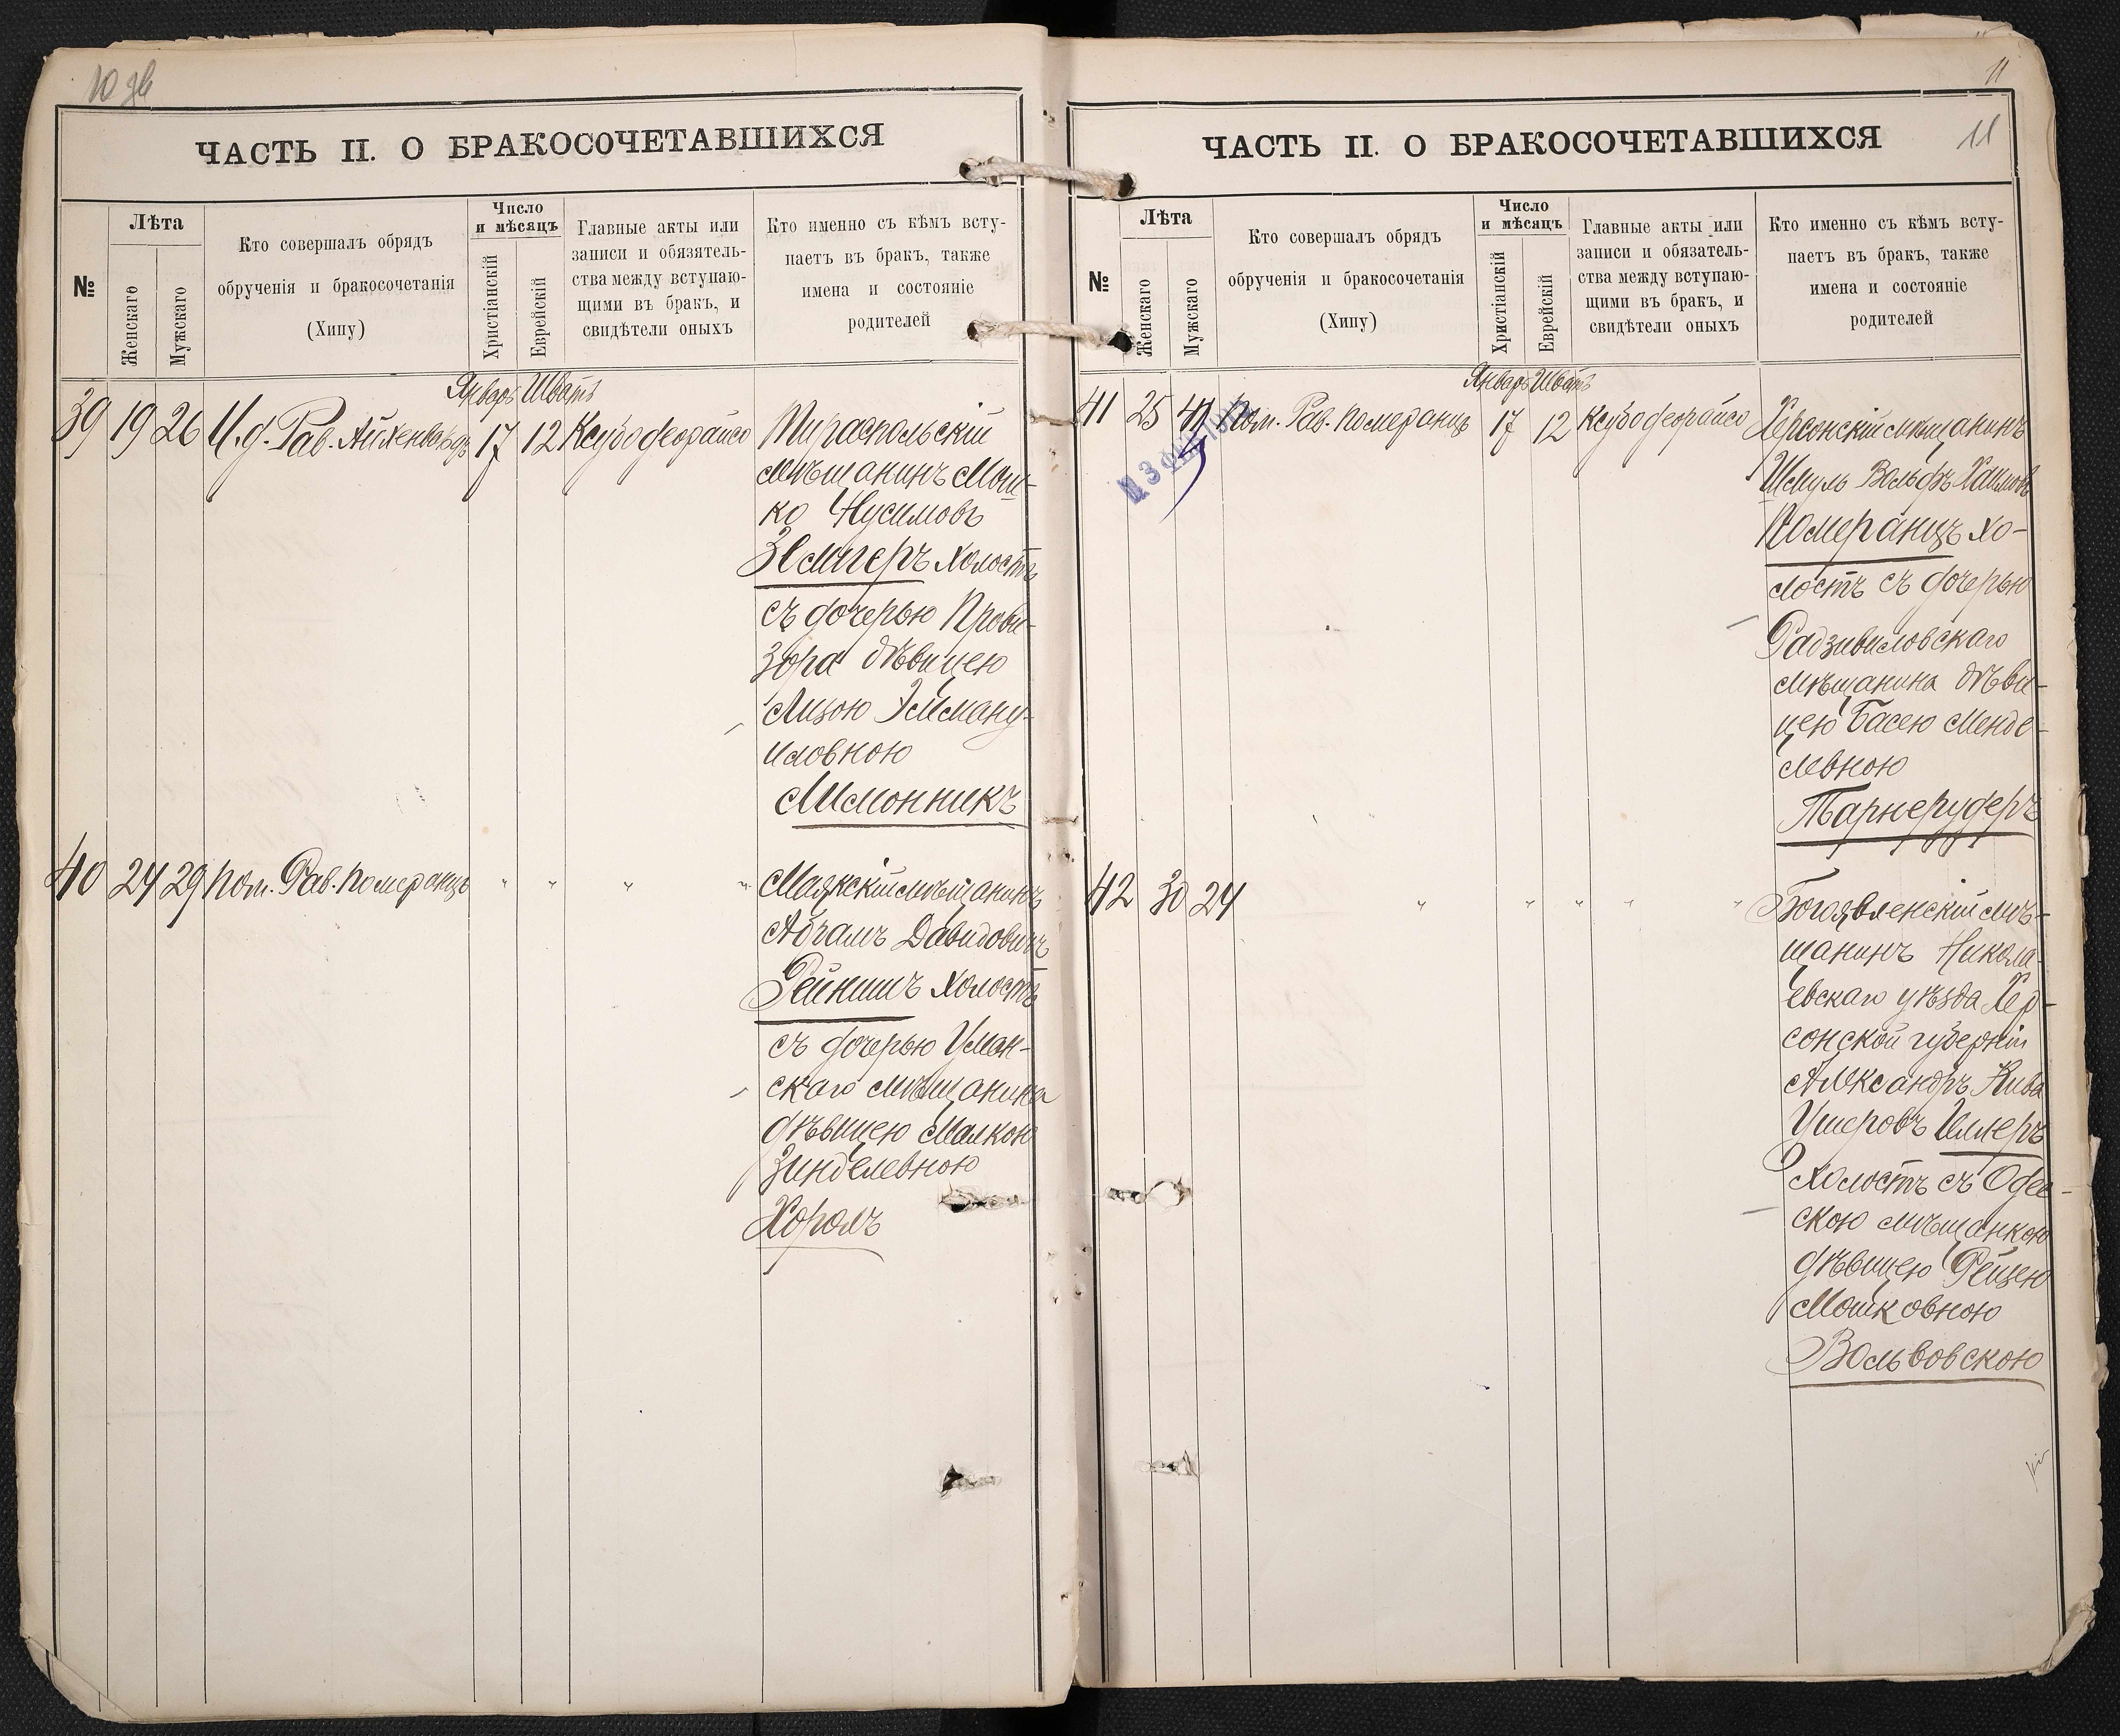 10 об
ЧАСТЬ II. О БРАКОСОЧЕТАВШИХСЯ
№
Лѣта
Женскаго
Мужскаго
Кто совершалъ обрядъ
обрученія и бракосочетанія
(Хипу)
Число
и мѣсяцъ
Христіанскій
Еврейскій
Главные акты или
записи и обязятель-
ства между вступаю-
щими въ бракъ, и
свидѣтели оныхъ
Кто именно съ кѣмъ всту-
паетъ въ бракъ, также
имена и состояніе
родителей
Январь Шватъ
39 19 26 И.д. Рав. Айхенвальдъ 17 12 Ксубо деорайсо
Тираспольскій
мѣщанинъ Мош-
ко Нусимовъ
Землеръ холостъ
съ дочерью Прови-
зора дѣвицею
Лизою Эмману-
иловною
Лимонникъ
40 24 29 пом. Рав. Померанцъ " " " "
Маякскій мѣщанинъ
Абрамъ Давидовичъ
Рейнишъ холостъ
съ дочерью Уман-
скаго мѣщанина
дѣвицею Малкою
Зинделевною
Хороль
11
11
ЧАСТЬ II. О БРАКОСОЧЕТАВШИХСЯ
№
Лѣта
Женскаго
Мужскаго
Кто совершалъ обрядъ
обрученія и бракосочетанія
(Хипу)
Число
и мѣсяцъ
Христіанскій
Еврейскій
Главные акты или
записи и обязатель-
ства между вступаю-
щими въ бракъ, и
свидѣтели оныхъ
Кто именно съ кѣмъ всту-
паетъ въ бракъ, также
имена и состояніе
родителей
Январь Шватъ
41 25 41 пом. Рав. Померанцъ 17 12 Ксубо деорайсо
Херсонскій мѣщанинъ
Шмуль Вольфъ Хаимовъ
Померанцъ хо-
лостъ съ дочерью
Радзивиловскаго
мѣщанина дѣви-
цею Басею Менде-
левною
Тарнерудеръ
42 30 24 " " " " "
Богоявленскій мѣ-
щанинъ Никола-
евскаго уѣзда Хер-
сонской губерніи
Александръ Кива
Ушеровъ Иллеръ
холостъ съ Одес-
скою мѣщанкою
дѣвицею Рейзею
Мошковною
Вольвовскою